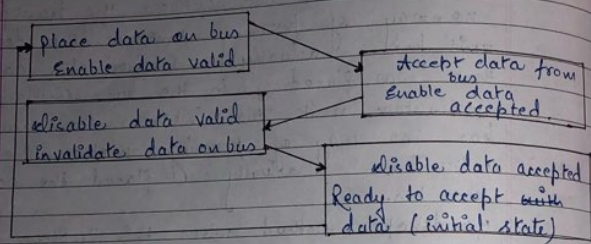 place data on bus
Enable data valid
Accept data from
bus
Enable data
accepted.
disable data valid
invalidate data on bus
disable data accepted
Ready to accept
data (initial state)